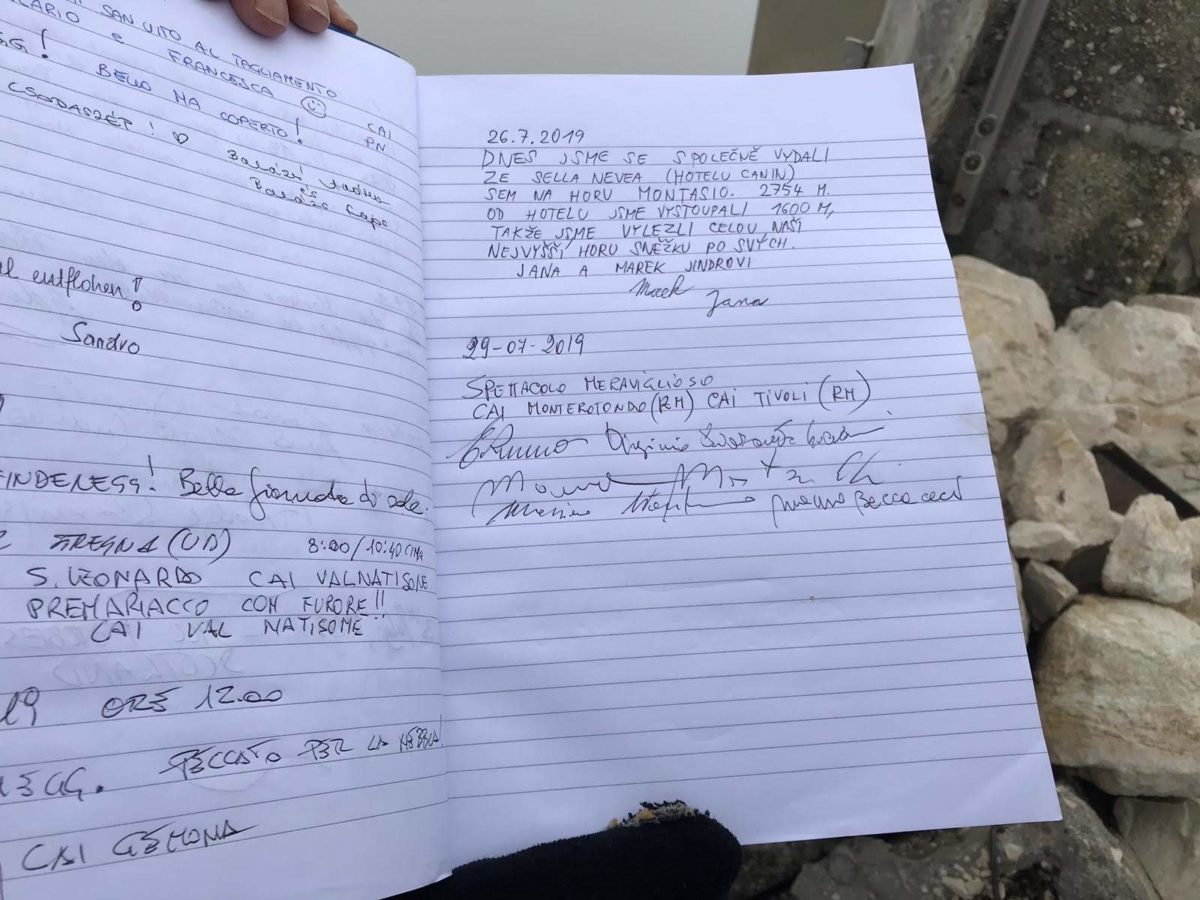 SAN VITO AL TAGLIAMENTO
e FRANCESCA
CAI
PN
BELLO MA COPERTO!
CSODASZÉP! ♡
Balázs
és
Balázs
entflohen!
Sandro
Bella giornata di sole.
(UD) 8:00/10:40 CIMA
S. LEONARDO CAI VALNATISONE
PREMARIACCO CON FURORE!!
CAI VAL NATISONE
19 ORE 12.00
PECCATO PER LA NEBBIA!
CAI GEMONA
26.7.2019
DNES JSME SE SPOLEČNĚ VYDALI
ZE SELLA NEVEA (HOTELU CANIN)
SEM NA HORU MONTASIO. 2754 M.
OD HOTELU JSME VYSTOUPALI 1600 M,
TAKŽE JSME VYLEZLI CELOU NAŠÍ
NEJVYŠŠÍ HORU SNĚŽKU PO SVÝCH.
JANA A MAREK JINDROVI
Marek
Jana
29-07-2019
SPETTACOLO MERAVIGLIOSO
CAI MONTEROTONDO (RM) CAI TIVOLI (RM)
Virginio